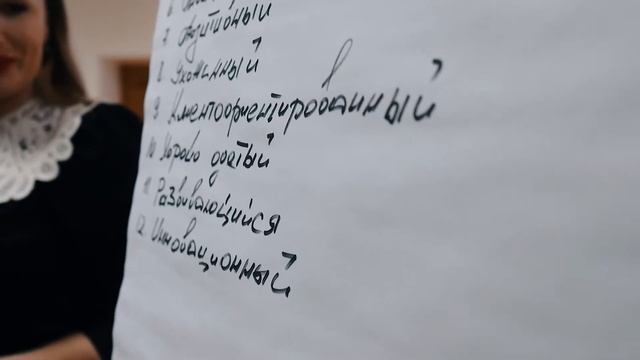 8. Ухоженный
9. Клиентоориентированный
10. Хорошо одетый
11. Развивающийся
12. Инновационный